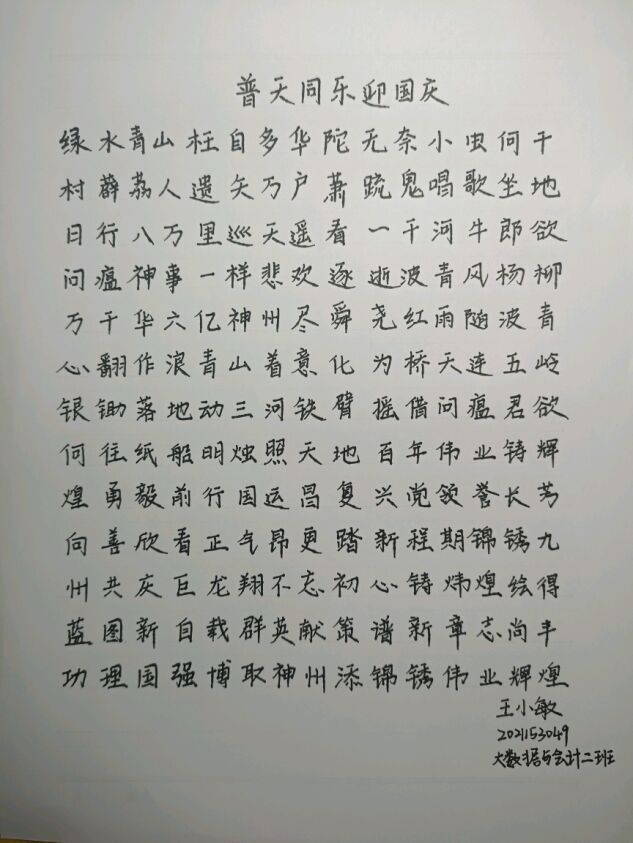 普天同乐迎国庆
绿水青山枉自多华陀无奈小虫何千
村薜荔人遗矢万户萧疏鬼唱歌坐地
日行八万里巡天遥看一千河牛郎欲
问瘟神事一样悲欢逐逝波青风杨柳
万千华六亿神州尽舜尧红雨随波青
心翻作浪青山着意化为桥天连五岭
银锄落地动三河铁臂摇借问瘟君欲
何往纸船明烛照天地百年伟业铸辉
煌勇毅前行国运昌复兴党领誉长艻
向善欣看正气昂更踏新程期锦锈九
州共庆巨龙翔不忘初心铸炜煌绘得
蓝图新自载群英献策谱新章志尚丰
功理国强博取神州添锦锈伟业辉煌
王小敏
202153049
大数据与会计二班